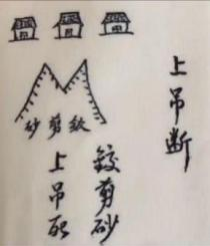 上吊断
砂剪铰
铰剪砂
上吊死